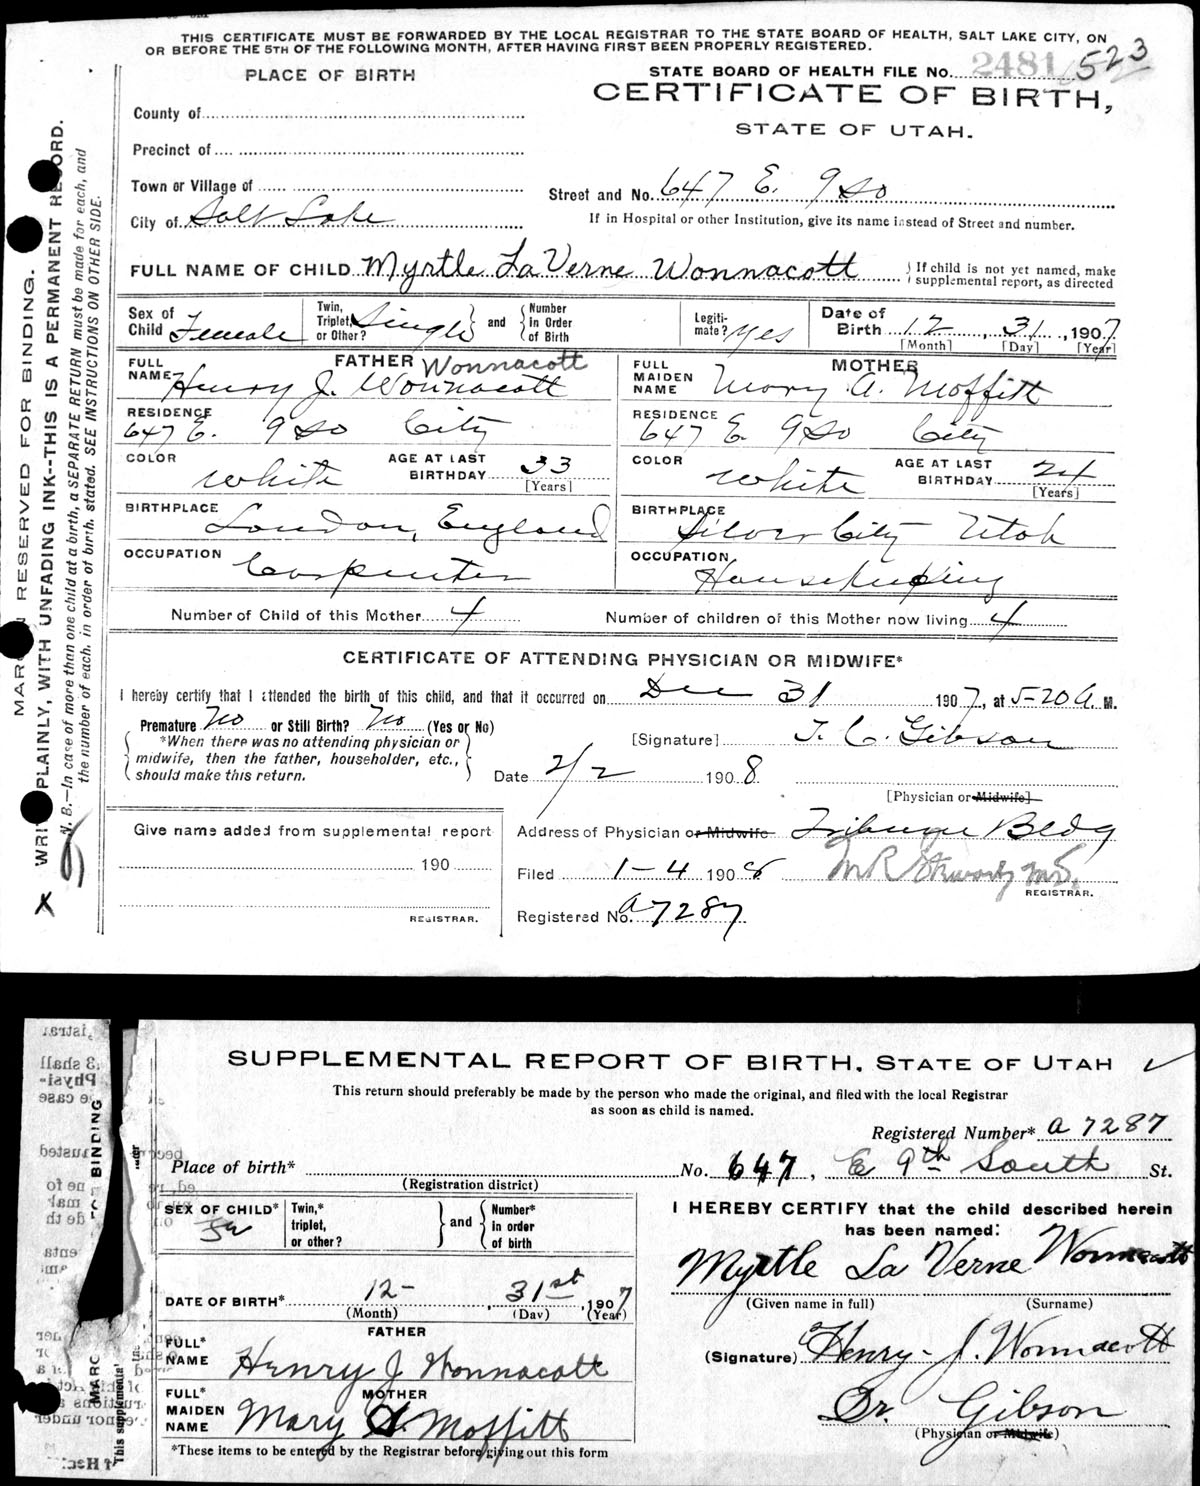 THIS CERTIFICATE MUST BE FORWARDED BY THE LOCAL REGISTRAR TO THE STATE BOARD OF HEALTH, SALT LAKE CITY, ON
OR BEFORE THE 5TH OF THE FOLLOWING MONTH, AFTER HAVING FIRST BEEN PROPERLY REGISTERED.
PLACE OF BIRTH
STATE BOARD OF HEALTH FILE No. 2481 523
CERTIFICATE OF BIRTH,
STATE OF UTAH.
County of
Precinct of
Town or Village of
Street and No. 647 E. 9 So
City of Salt Lake
If in Hospital or other Institution, give its name instead of Street and number.
FULL NAME OF CHILD Myrtle La Verne Wonnacott
If child is not yet named, make
supplemental report, as directed
Sex of Child Female
Twin, Triplet, or Other? Single and Number in Order of Birth
Legitimate? Yes
Date of Birth 12, 31, 1907
[Month] [Day] [Year]
FATHER Wonnacott
FULL NAME Henry J. Wonnacott
RESIDENCE 647 E. 9 So City
COLOR White AGE AT LAST BIRTHDAY 33 [Years]
BIRTHPLACE London, England
OCCUPATION Carpenter
MOTHER
FULL MAIDEN NAME Mary A. Moffitt
RESIDENCE 647 E 9 So City
COLOR White AGE AT LAST BIRTHDAY 24 [Years]
BIRTHPLACE Silver City Utah
OCCUPATION Housekeeping
Number of Child of this Mother 4 Number of children of this Mother now living 4
CERTIFICATE OF ATTENDING PHYSICIAN OR MIDWIFE*
I hereby certify that I attended the birth of this child, and that it occurred on Dec 31 1907, at 5-20 A. M.
Premature No or Still Birth? No (Yes or No)
*When there was no attending physician or
midwife, then the father, householder, etc.,
should make this return.
[Signature] T. C. Gibson
Date 2/2 1908
[Physician or Midwife]
Give name added from supplemental report
190
REGISTRAR.
Address of Physician or Midwife Tribune Bldg
Filed 1-4 1908
REGISTRAR.
Registered No. A7287
MARGIN RESERVED FOR BINDING.
WRITE PLAINLY, WITH UNFADING INK--THIS IS A PERMANENT RECORD.
N. B.--In case of more than one child at a birth, a SEPARATE RETURN must be made for each, and
the number of each, in order of birth, stated. SEE INSTRUCTIONS ON OTHER SIDE.
X
SUPPLEMENTAL REPORT OF BIRTH, STATE OF UTAH
This return should preferably be made by the person who made the original, and filed with the local Registrar
as soon as child is named.
Registered Number* A 7287
Place of birth* No. 647, E 9th South St.
(Registration district)
SEX OF CHILD* Fe
Twin,* triplet, or other? and Number* in order of birth
DATE OF BIRTH* 12- , 31st, 1907
(Month) (Day) (Year)
FATHER
FULL* NAME Henry J Wonnacott
MOTHER
FULL* MAIDEN NAME Mary A. Moffitt
*These items to be entered by the Registrar before giving out this form
I HEREBY CERTIFY that the child described herein
has been named:
Myrtle La Verne Wonnacott
(Given name in full) (Surname)
(Signature) Henry J. Wonnacott
Dr. Gibson
(Physician or Midwife)
BINDING
This supplemental